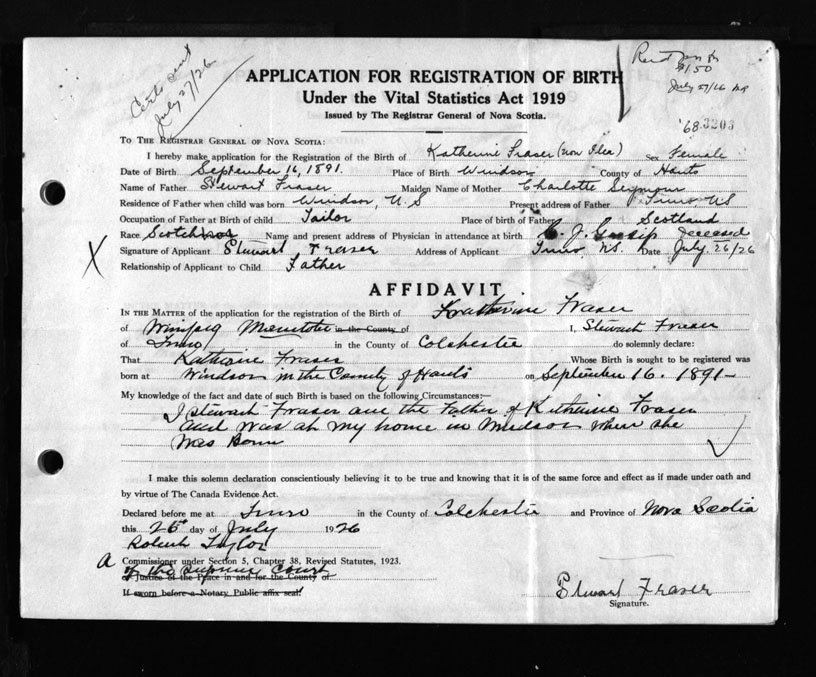 Certs sent
July 27/26
$1.50
July 27/26
APPLICATION FOR REGISTRATION OF BIRTH
Under the Vital Statistics Act 1919
Issued by The Registrar General of Nova Scotia.
'68 3203
TO THE REGISTRAR GENERAL OF NOVA SCOTIA:
I hereby make application for the Registration of the Birth of Katherine Fraser (now) Sex Female
Date of Birth September 16, 1891. Place of Birth Windsor County of Hants
Name of Father Stewart Fraser Maiden Name of Mother Charlotte Seymour
Residence of Father when child was born Windsor, N.S Present address of Father Truro, NS
Occupation of Father at Birth of child Tailor Place of birth of Father Scotland
Race Scotch Name and present address of Physician in attendance at birth J. deceased
X Signature of Applicant Stewart Fraser Address of Applicant Truro, NS. Date July. 26/26
Relationship of Applicant to Child Father
AFFIDAVIT
IN THE MATTER of the application for the registration of the Birth of Katherine Fraser
of Winipeg Manitoba in the County of I, Stewart Fraser
of Truro in the County of Colchester do solemnly declare:
That Katherine Fraser Whose Birth is sought to be registered was
born at Windsor in the County of Hants on September 16. 1891-
My knowledge of the fact and date of such Birth is based on the following Circumstances:—
I Stewart Fraser am the Father of Katherine Fraser
and was at my home in Windsor when she
was Born
I make this solemn declaration conscientiously believing it to be true and knowing that it is of the same force and effect as if made under oath and
by virtue of The Canada Evidence Act.
Declared before me at Truro in the County of Colchester and Province of Nova Scotia
this 26th day of July 1926
Robert Taylor
a Commissioner under Section 5, Chapter 38, Revised Statutes, 1923.
of the Supreme Court
or Justice of the Peace in and for the County of
If sworn before a Notary Public affix seal.
Stewart Fraser
Signature.